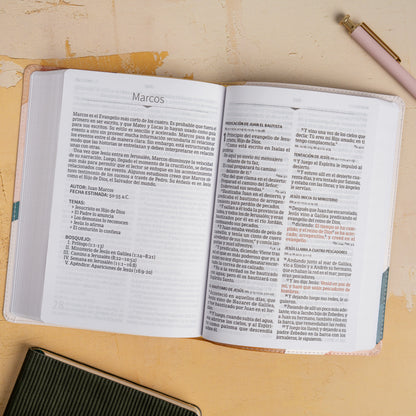 Marcos
Marcos es el Evangelio más corto de los cuatro. Es probable que fuera el
primero en ser escrito, y que Mateo y Lucas lo hayan usado como
para sus escritos. Su estilo es sencillo y acelerado. Marcos pasa de un
evento a otro sin prestar mucha información secundaria ni relatar
los eventos entre de manera clara. Sin embargo, está
modo que las historias se entienden y
unas con otras.
Una vez que Jesús entra en Jerusalén, Marcos disminuye la velocidad
de su narración. Luego, llegado el momento de la crucifixión, se detiene
aún más para permitir que el lector se enfoque en los acontecimientos
relacionados con ese evento. Algunos estudiosos creen que Marcos
fue testimonio de los recuerdos de Pedro. Su énfasis es en Jesús
como el Hijo de Dios, el Salvador del mundo.
AUTOR: Juan Marcos
FECHA ESTIMADA: 50-55 d.C.
TEMAS:
• Jesucristo es Hijo de Dios
• El Padre lo anuncia
• Los demonios lo temen
• Jesús lo afirma
• El centurión lo confiesa
BOSQUEJO:
I. Prólogo (1:1-13)
II. Ministerio de Jesús en Galilea (1:14–8:21)
III. Camino a Jerusalén (8:22–10:52)
IV. Semana en Jerusalén (11:1–16:8)
V. Apéndice: Apariciones de Jesús (16:9-20)
PREDICACIÓN DE JUAN EL BAUTISTA
1 Principio del evangelio de Jesucristo,
Hijo de Dios.
2 Como está escrito en Isaías el
profeta:
He aquí yo envío mi mensajero
delante de tu faz,
el cual preparará tu camino
delante de ti.
3 Voz del que clama en el desierto:
Preparad el camino del Señor;
Enderezad sus sendas.
4 Bautizaba Juan en el desierto, y
predicaba el bautismo de arrepentimiento
para perdón de pecados.
5 Y salían a él toda la provincia de
Judea, y todos los de Jerusalén; y eran
bautizados por él en el río Jordán,
confesando sus pecados.
6 Y Juan estaba vestido de pelo de
camello, y tenía un cinto de cuero
alrededor de sus lomos; y comía langostas
y miel silvestre.
7 Y predicaba, diciendo: Viene tras
mí el que es más poderoso que yo, a
quien no soy digno de desatar encorvado
la correa de su calzado.
8 Yo a la verdad os he bautizado
con agua; pero él os bautizará con
Espíritu Santo.
EL BAUTISMO DE JESÚS
9 Aconteció en aquellos días, que
Jesús vino de Nazaret de Galilea, y
fue bautizado por Juan en el Jordán.
10 Y luego, cuando subía del agua,
vio abrirse los cielos, y al Espíritu
como paloma que descendía
11 Y vino una voz de los cielos que
decía: Tú eres mi Hijo amado; en ti
tengo complacencia.
TENTACIÓN DE JESÚS
12 Y luego el Espíritu le impulsó al
desierto.
13 Y estuvo allí en el desierto cuarenta
días, y era tentado por Satanás,
y estaba con las fieras; y los ángeles
le servían.
JESÚS INICIA SU MINISTERIO
14 Después que Juan fue encarcelado,
Jesús vino a Galilea predicando el
evangelio del reino de Dios,
15 diciendo: El tiempo se ha cumplido,
y el reino de Dios se ha acercado;
arrepentíos, y creed en el
evangelio.
JESÚS LLAMA A CUATRO PESCADORES
16 Andando junto al mar de Galilea,
vio a Simón y a Andrés su hermano,
que echaban la red en el mar; porque
eran pescadores.
17 Y les dijo Jesús: Venid en pos de
mí, y haré que seáis pescadores de
hombres.
18 Y dejando luego sus redes, le siguieron.
19 Pasando de allí un poco más adelante,
vio a Jacobo hijo de Zebedeo, y
a Juan su hermano, también ellos en
la barca, que remendaban las redes.
20 Y luego los llamó; y dejando a su
padre Zebedeo en la barca con los
jornaleros, le siguieron.